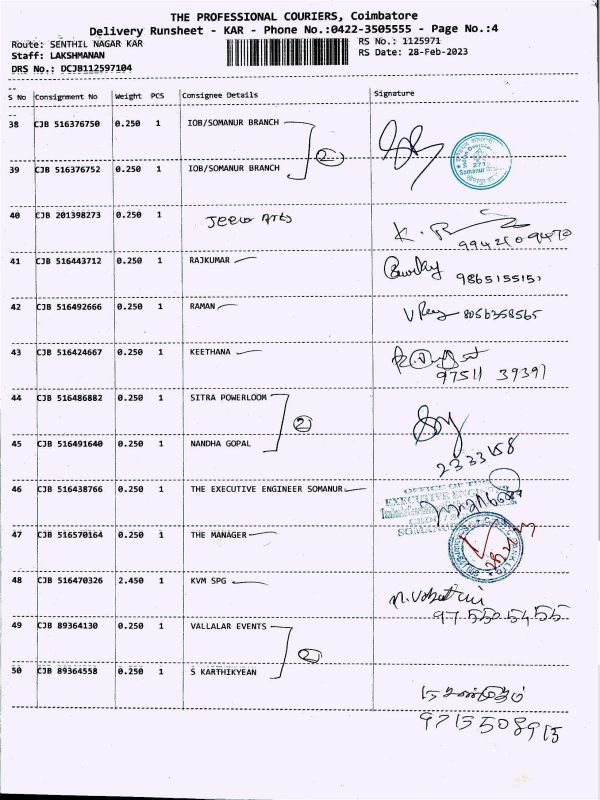 THE PROFESSIONAL COURIERS, Coimbatore
Delivery Runsheet - KAR - Phone No.:0422-3505555 - Page No.:4
Route: SENTHIL NAGAR KAR RS No.: 1125971
Staff: LAKSHMANAN RS Date: 28-Feb-2023
DRS No.: DCJB112597104
S No Consignment No Weight PCS Consignee Details Signature
38 CJB 516376750 0.250 1 IOB/SOMANUR BRANCH
2
39 CJB 516376752 0.250 1 IOB/SOMANUR BRANCH
40 CJB 201398273 0.250 1 Jeeva Arts
41 CJB 516443712 0.250 1 RAJKUMAR
986515515
42 CJB 516492666 0.250 1 RAMAN 8056358565
43 CJB 516424667 0.250 1 KEETHANA
97511 39391
44 CJB 516486882 0.250 1 SITRA POWERLOOM
2
45 CJB 516491640 0.250 1 NANDHA GOPAL
2333158
46 CJB 516438766 0.250 1 THE EXECUTIVE ENGINEER SOMANUR
OFFICE OF THE
EXECUTIVE
SOMANUR
47 CJB 516570164 0.250 1 THE MANAGER
48 CJB 516470326 2.450 1 KVM SPG
97550 5455
49 CJB 89364130 0.250 1 VALLALAR EVENTS
2
50 CJB 89364558 0.250 1 S KARTHIKYEAN
9715508915